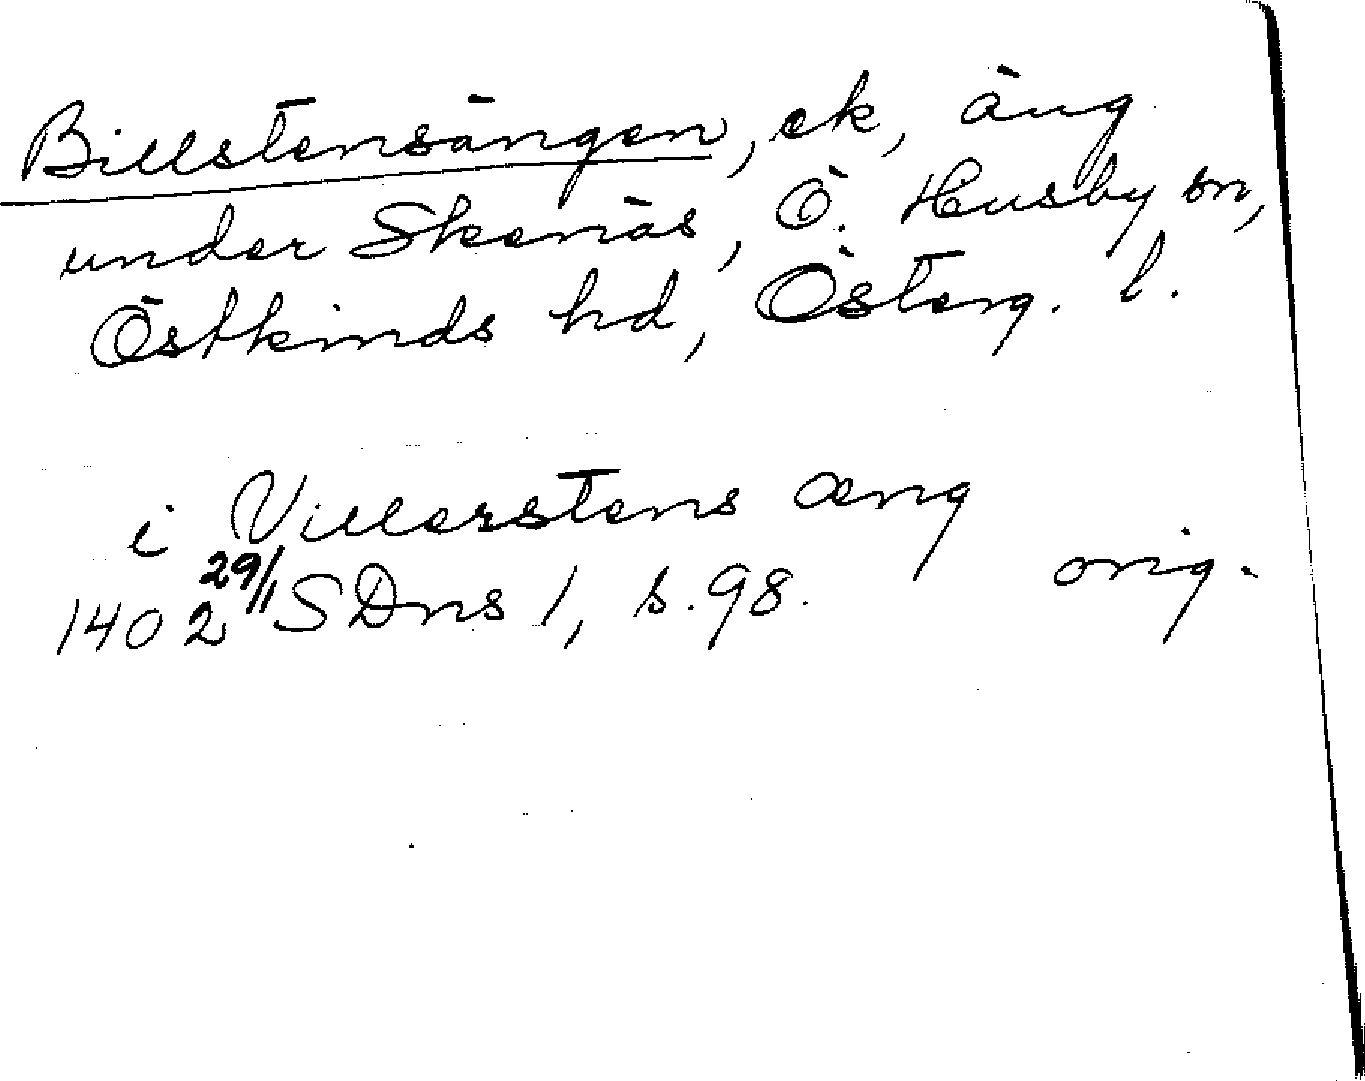 Billstensängen, ek, äng
under Skenäs, Ö. Husby sn,
Östkinds hd, Österg. l.
i Villerstens æng
1402 29/1 SDns 1, s. 98. orig.